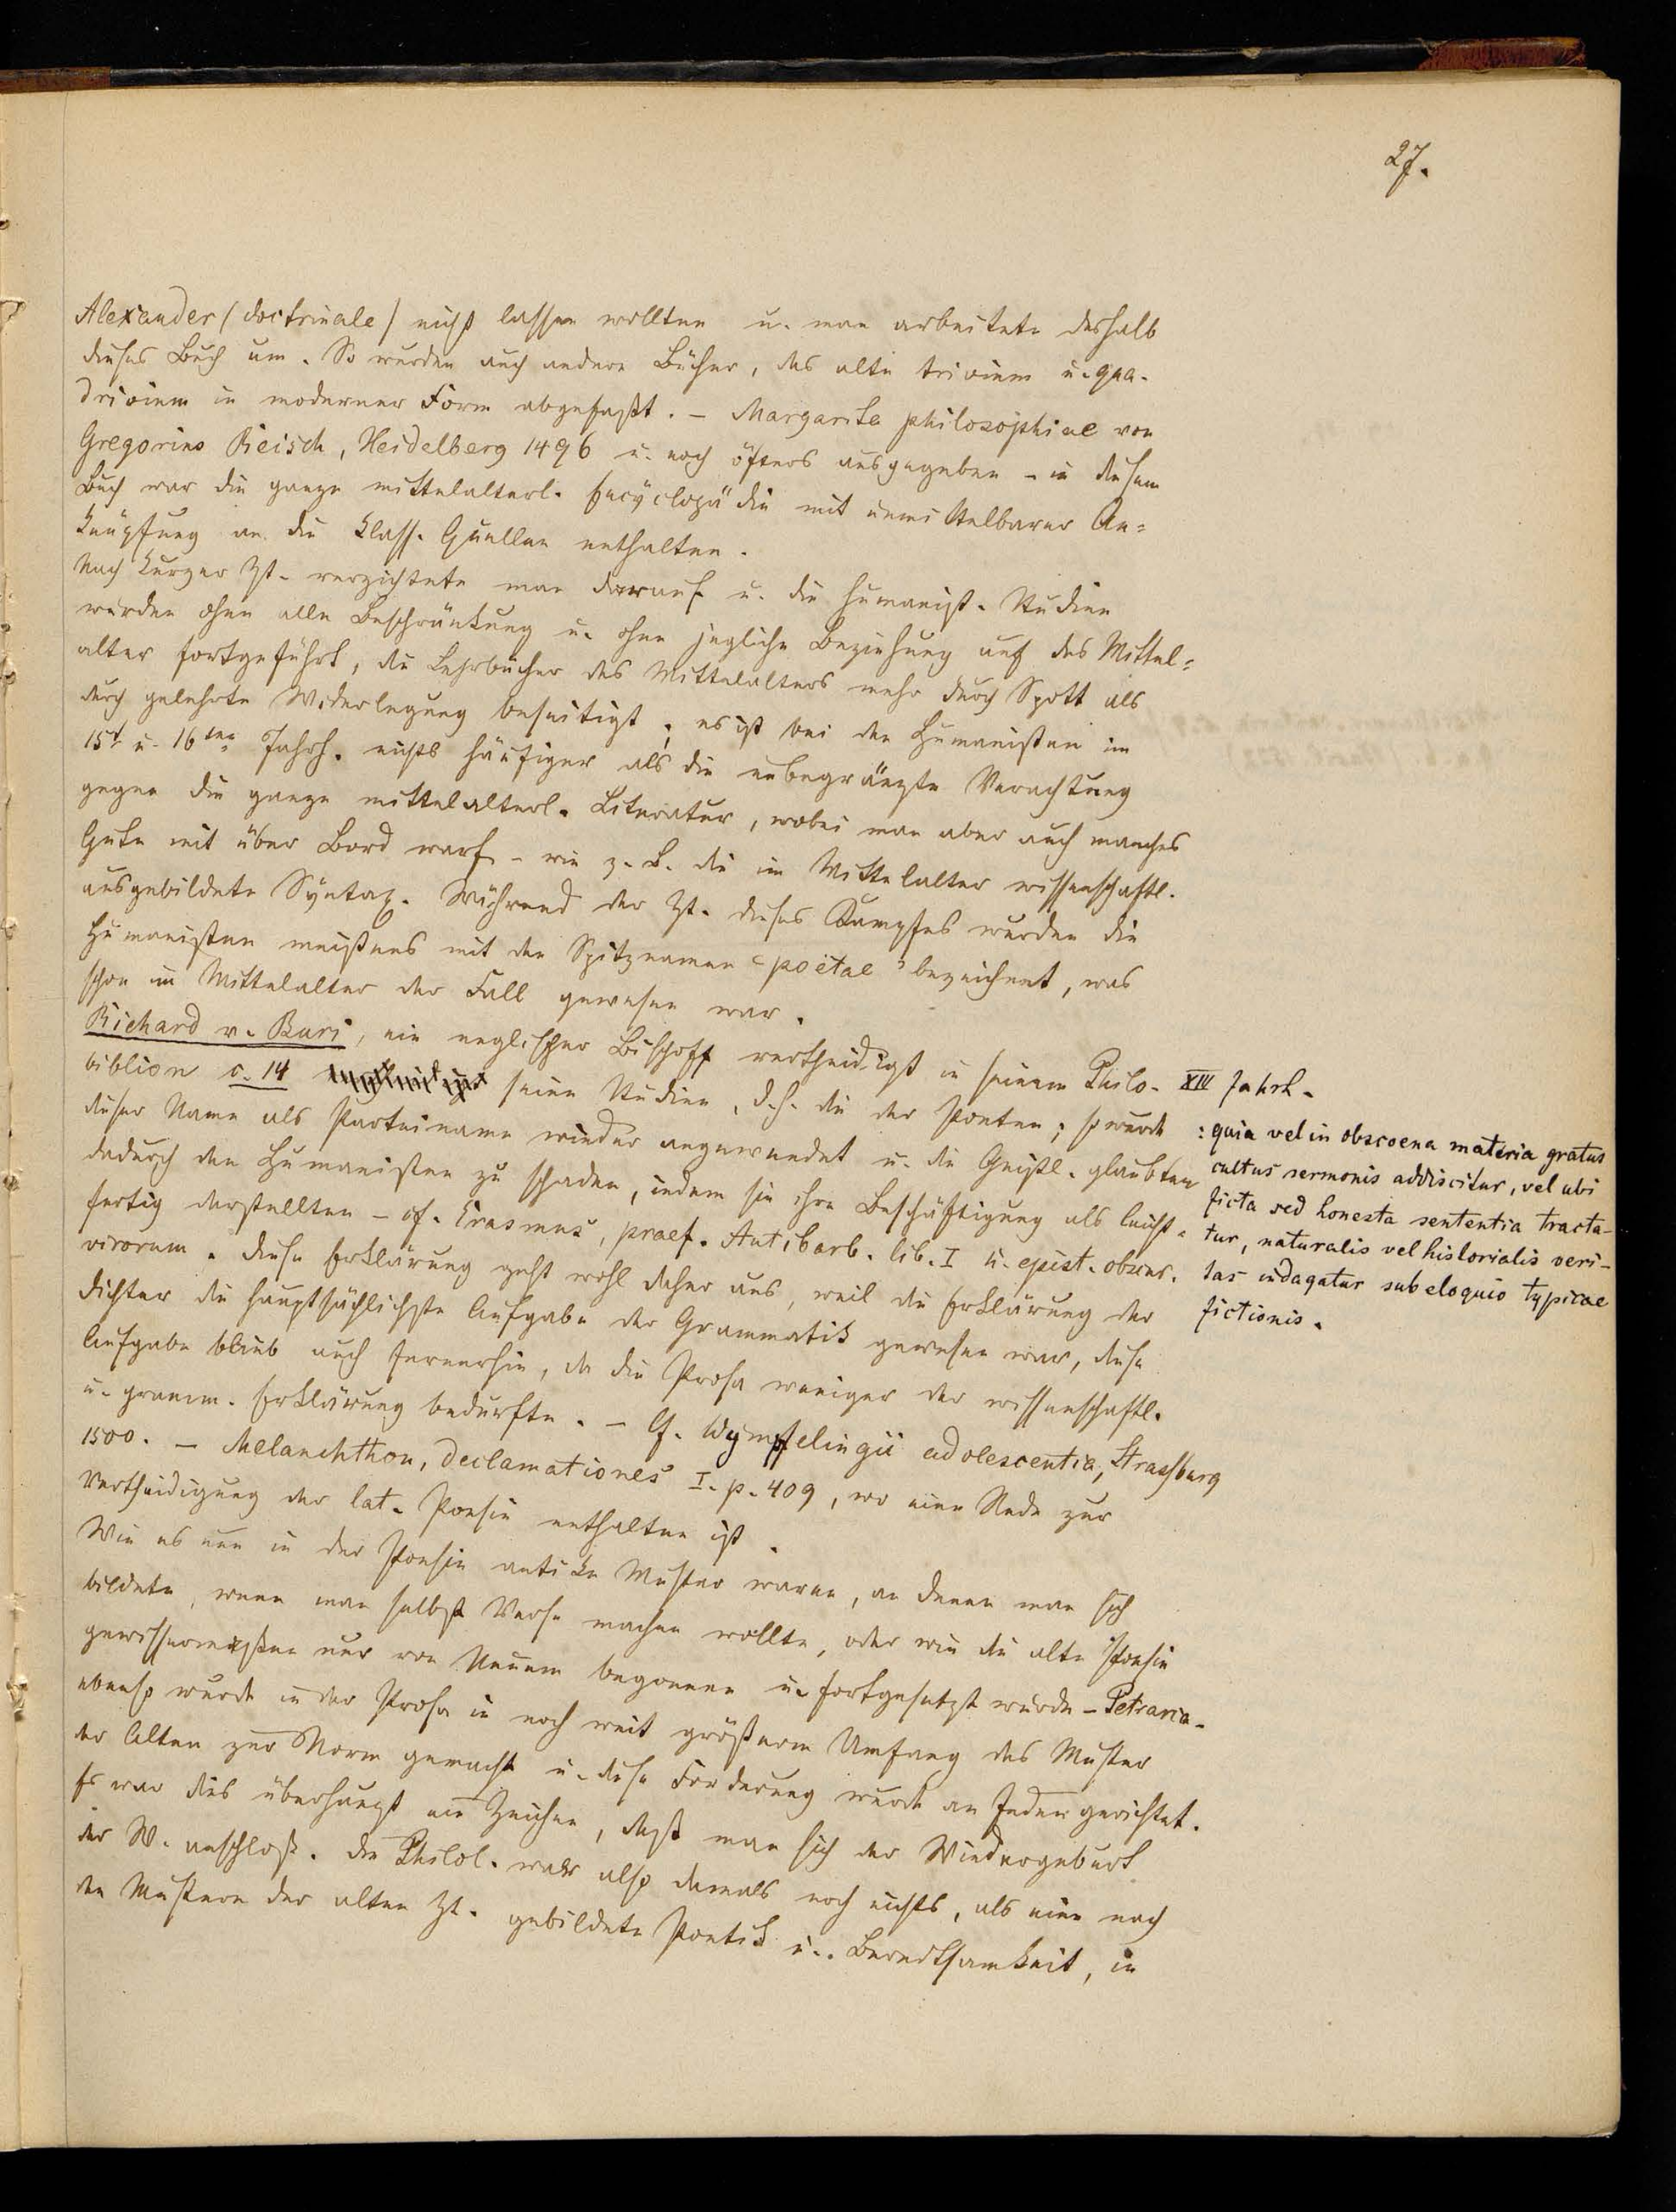 27.
Alexander (doctrinale) nicht lassen wollten u. man arbeitete deshalb
dieses Buch um. So wurden auch andere Bücher, das alte trivium u. qua-
drivium in moderner Form abgefaßt. – Margarita philosophiae von
Gregorius Reisch, Heidelberg 1496 u. noch öfters ausgegeben – in diesem
Buch war die ganze mittelalterl. Encyclopädie mit unmittelbarer An=
knüpfung an die klass. Quellen enthalten.
Nach kurzer Zt. verzichtete man darauf u. die humanist. Studien
wurden ohne alle Beschränkung u. ohne jegliche Beziehung auf das Mittel=
alter fortgeführt, die Lehrbücher des Mittelalters mehr durch Spott als
durch gelehrte Widerlegung beseitigt; es ist bei den Humanisten im
15t. u. 16ten Jahrh. nichts häufiger als die unbegränzte Verachtung
gegen die ganze mittelalterl. Literatur, wobei man aber auch manches
Gute mit über Bord warf – wie z. B. die im Mittelalter wissenschaftl.
ausgebildete Syntax. Während der Zt. dieses Kampfes wurden die
Humanisten meistens mit den Spitznamen "poëtae" bezeichnet, was
schon im Mittelalter der Fall gewesen war.
Richard v. Buri, ein englischer Bischoff vertheidigt in seinem Philo-
biblion c. 14 seine Studien, d. h. die der Poeten; so wurde
dieser Name als Parteiname wieder angewendet u. die Geistl. glaubten
dadurch den Humanisten zu schaden, indem sie ihre Beschäftigung als leicht=
fertig darstellten – cf. Erasmus, praef. Antibarb. lib. I u. epist. obscur.
virorum. Diese Erklärung geht wohl daher aus, weil die Erklärung der
Dichter die hauptsächlichste Aufgabe der Grammatik gewesen war, diese
Aufgabe blieb auch fernerhin, da die Prosa weniger der wissenschaftl.
u. gramm. Erklärung bedurfte. – Cf. Wympfelingii adolescentia, Strassburg
1500. – Melanchthon, Declamationes I. p. 409, wo eine Rede zur
Vertheidigung der lat. Poesie enthalten ist.
Wie es nun in der Poesie antike Muster waren, an denen man sich
bildete, wenn man selbst Verse machen wollte, oder wie die alte Poesie
gewissermaßen nur von Neuem begonnen u. fortgesetzt wurde – Petrarca –
ebenso wurde in der Prosa in noch weit größerm Umfang das Muster
der Alten zur Norm gemacht u. diese Forderung wurde an Jeden gerichtet.
Es war dies überhaupt ein Zeichen, daß man sich der Wiedergeburt
der W. anschloß. Die Philol. war also damals noch nichts, als eine nach
den Mustern der alten Zt. gebildete Poetik u. Beredtsamkeit, in
XIV Jahrh.
: quia vel in obscoena materia gratus
cultus sermonis addiscitur, vel ubi
ficta sed honesta sententia tracta-
tur, naturalis vel historialis veri-
tas indagatur sub eloquio typicae
fictionis.